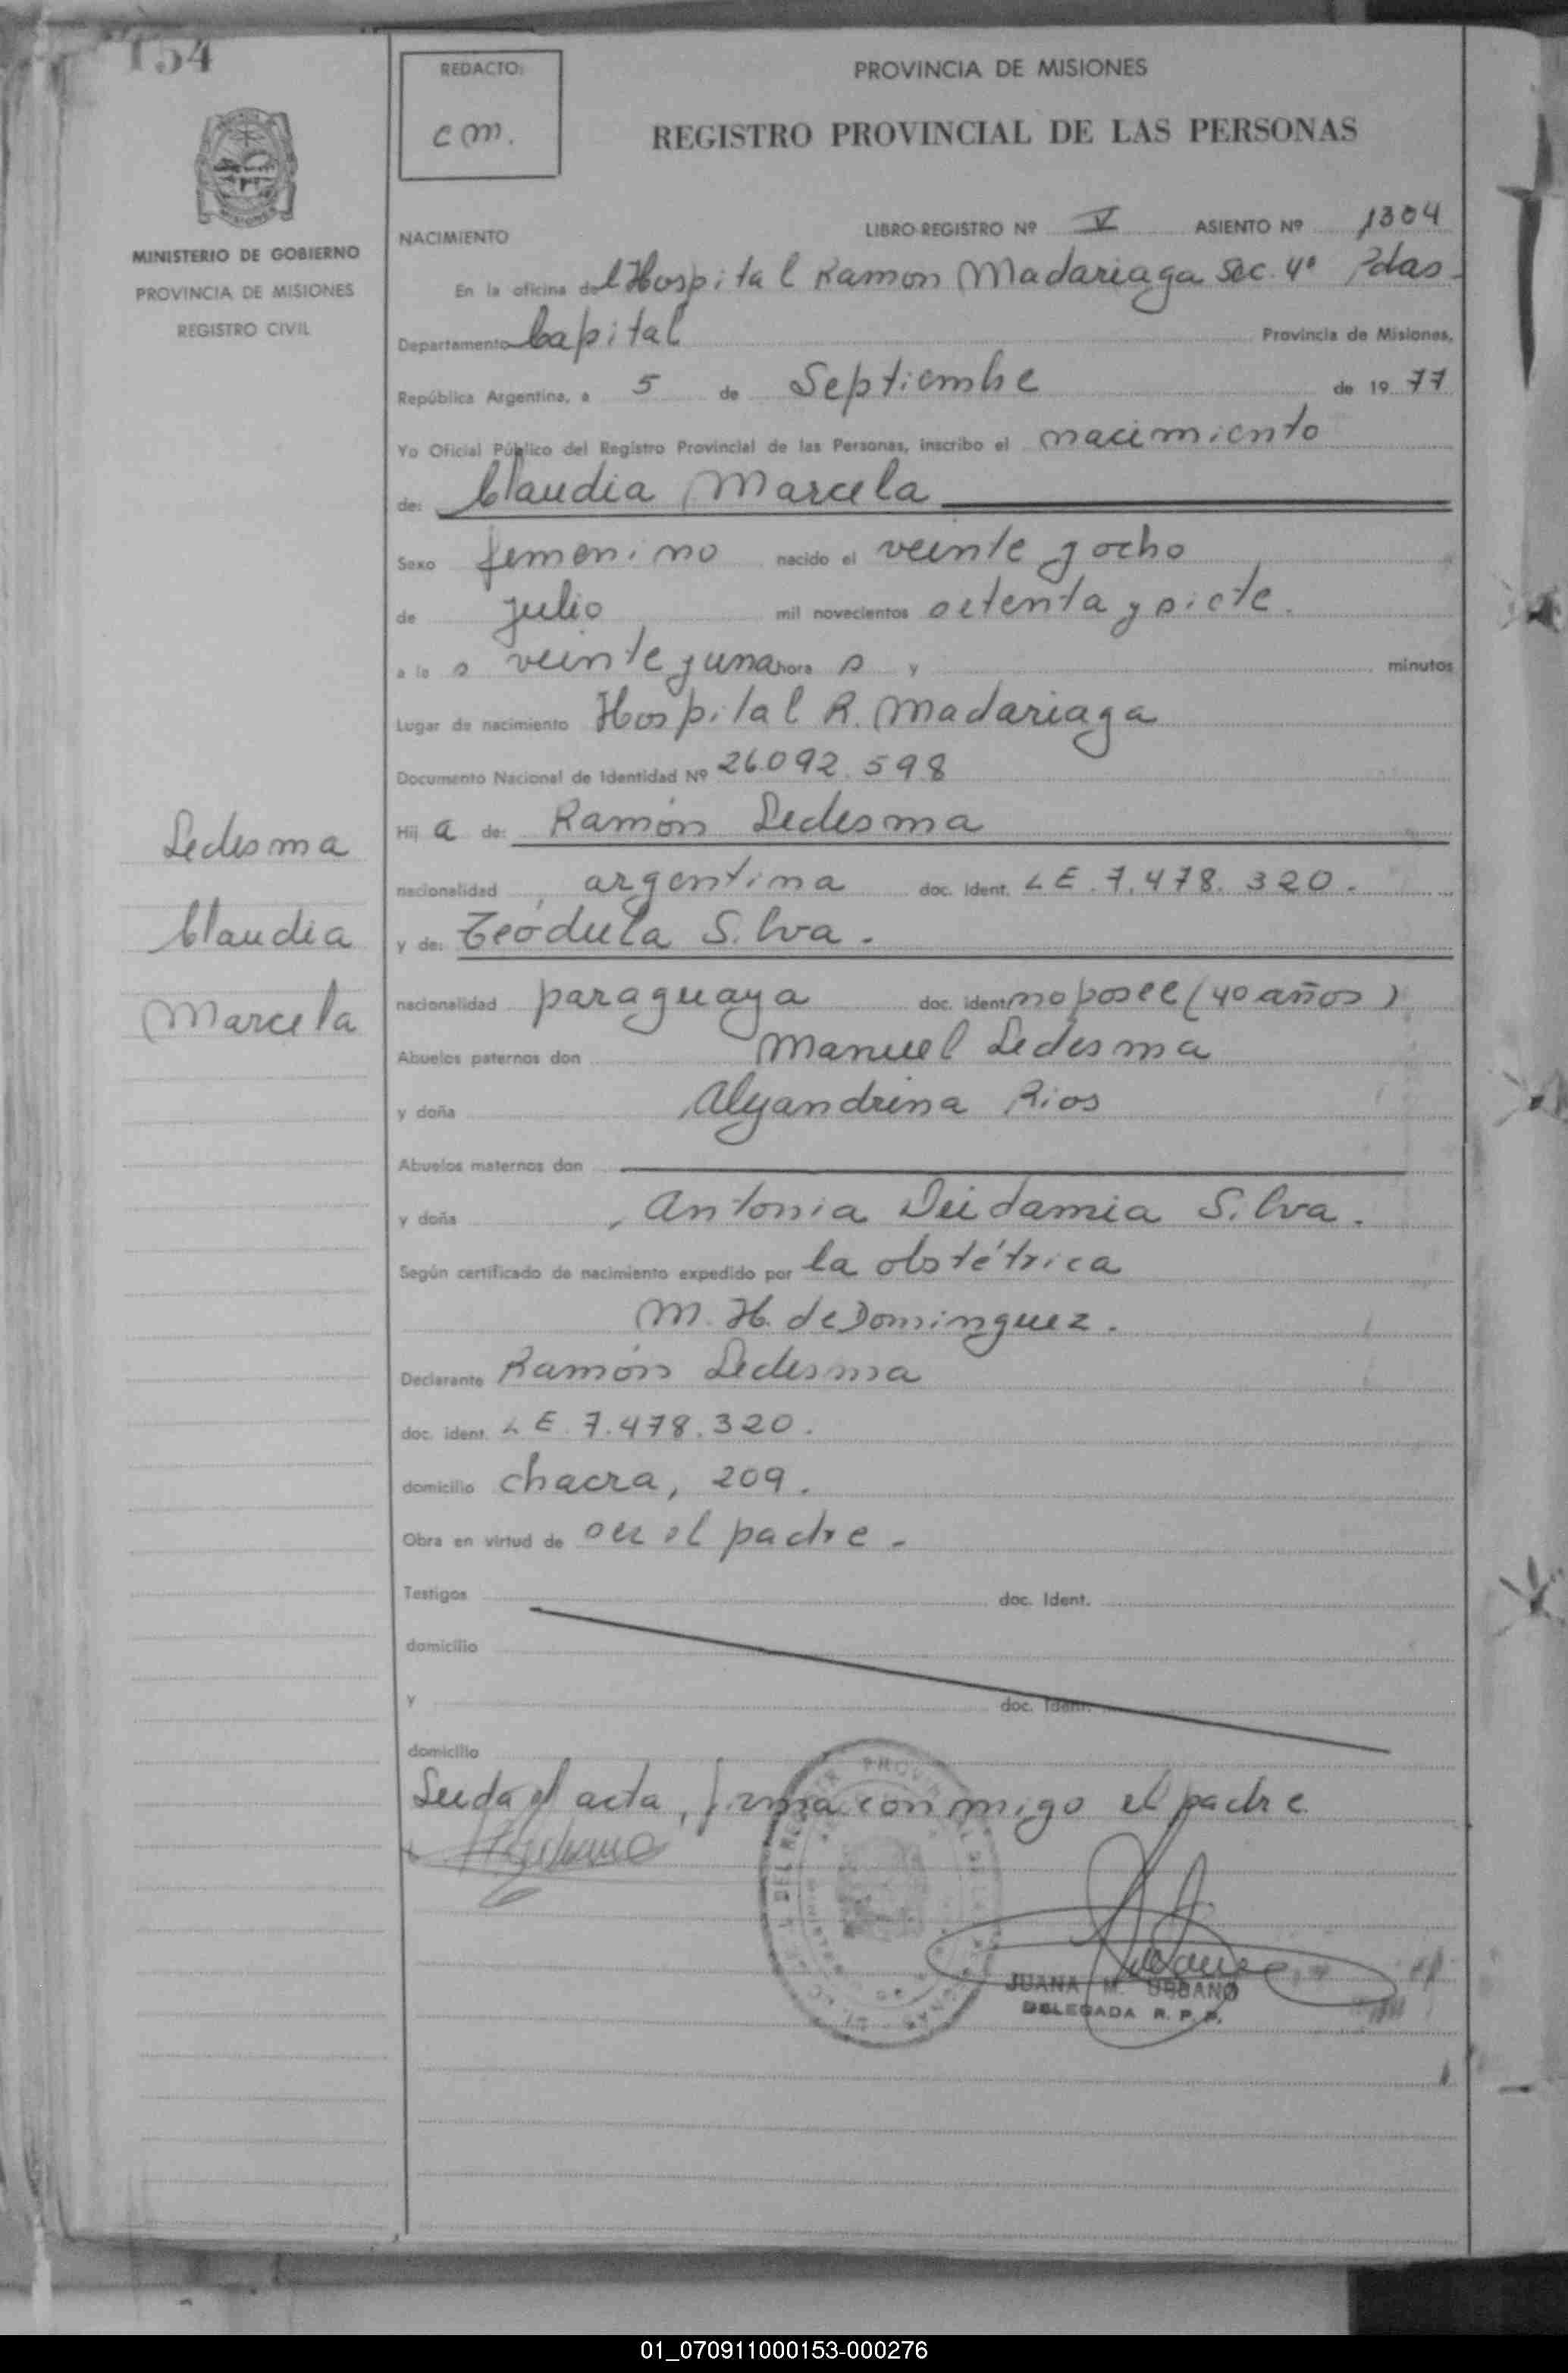 154
REDACTO:
c m.
PROVINCIA DE MISIONES
REGISTRO PROVINCIAL DE LAS PERSONAS
MINISTERIO DE GOBIERNO
PROVINCIA DE MISIONES
REGISTRO CIVIL
NACIMIENTO
LIBRO-REGISTRO Nº V ASIENTO Nº 1304
En la oficina del Hospital Ramon Madariaga Sec. 4ª Pdas.
Departamento Capital Provincia de Misiones,
República Argentina, a 5 de Septiembre de 1977
Yo Oficial Público del Registro Provincial de las Personas, inscribo el nacimiento
de: Claudia Marcela
Sexo femenino nacido el veinte y ocho
de julio mil novecientos setenta y siete.
a las veinte y una horas y minutos
Lugar de nacimiento Hospital R. Madariaga
Documento Nacional de Identidad Nº 26.092.598
Hija de: Ramón Ledesma
nacionalidad argentina doc. Ident. LE. 7.478.320.
y de: Teódula Silva.
nacionalidad paraguaya doc. ident. no posee (40 años)
Abuelos paternos don Manuel Ledesma
y doña Alejandrina Rios
Abuelos maternos don
y doña Antonia Deidamia Silva.
Según certificado de nacimiento expedido por la obstétrica
M. H. de Dominguez.
Declarante Ramón Ledesma
doc. ident. LE. 7.478.320.
domicilio chacra, 209.
Obra en virtud de ser el padre.
Testigos doc. Ident.
domicilio
y doc. Ident.
domicilio
Leida el acta, firma conmigo el padre
JUANA M. URBANO
DELEGADA R. P. P.
Ledesma
Claudia
Marcela
01_070911000153-000276